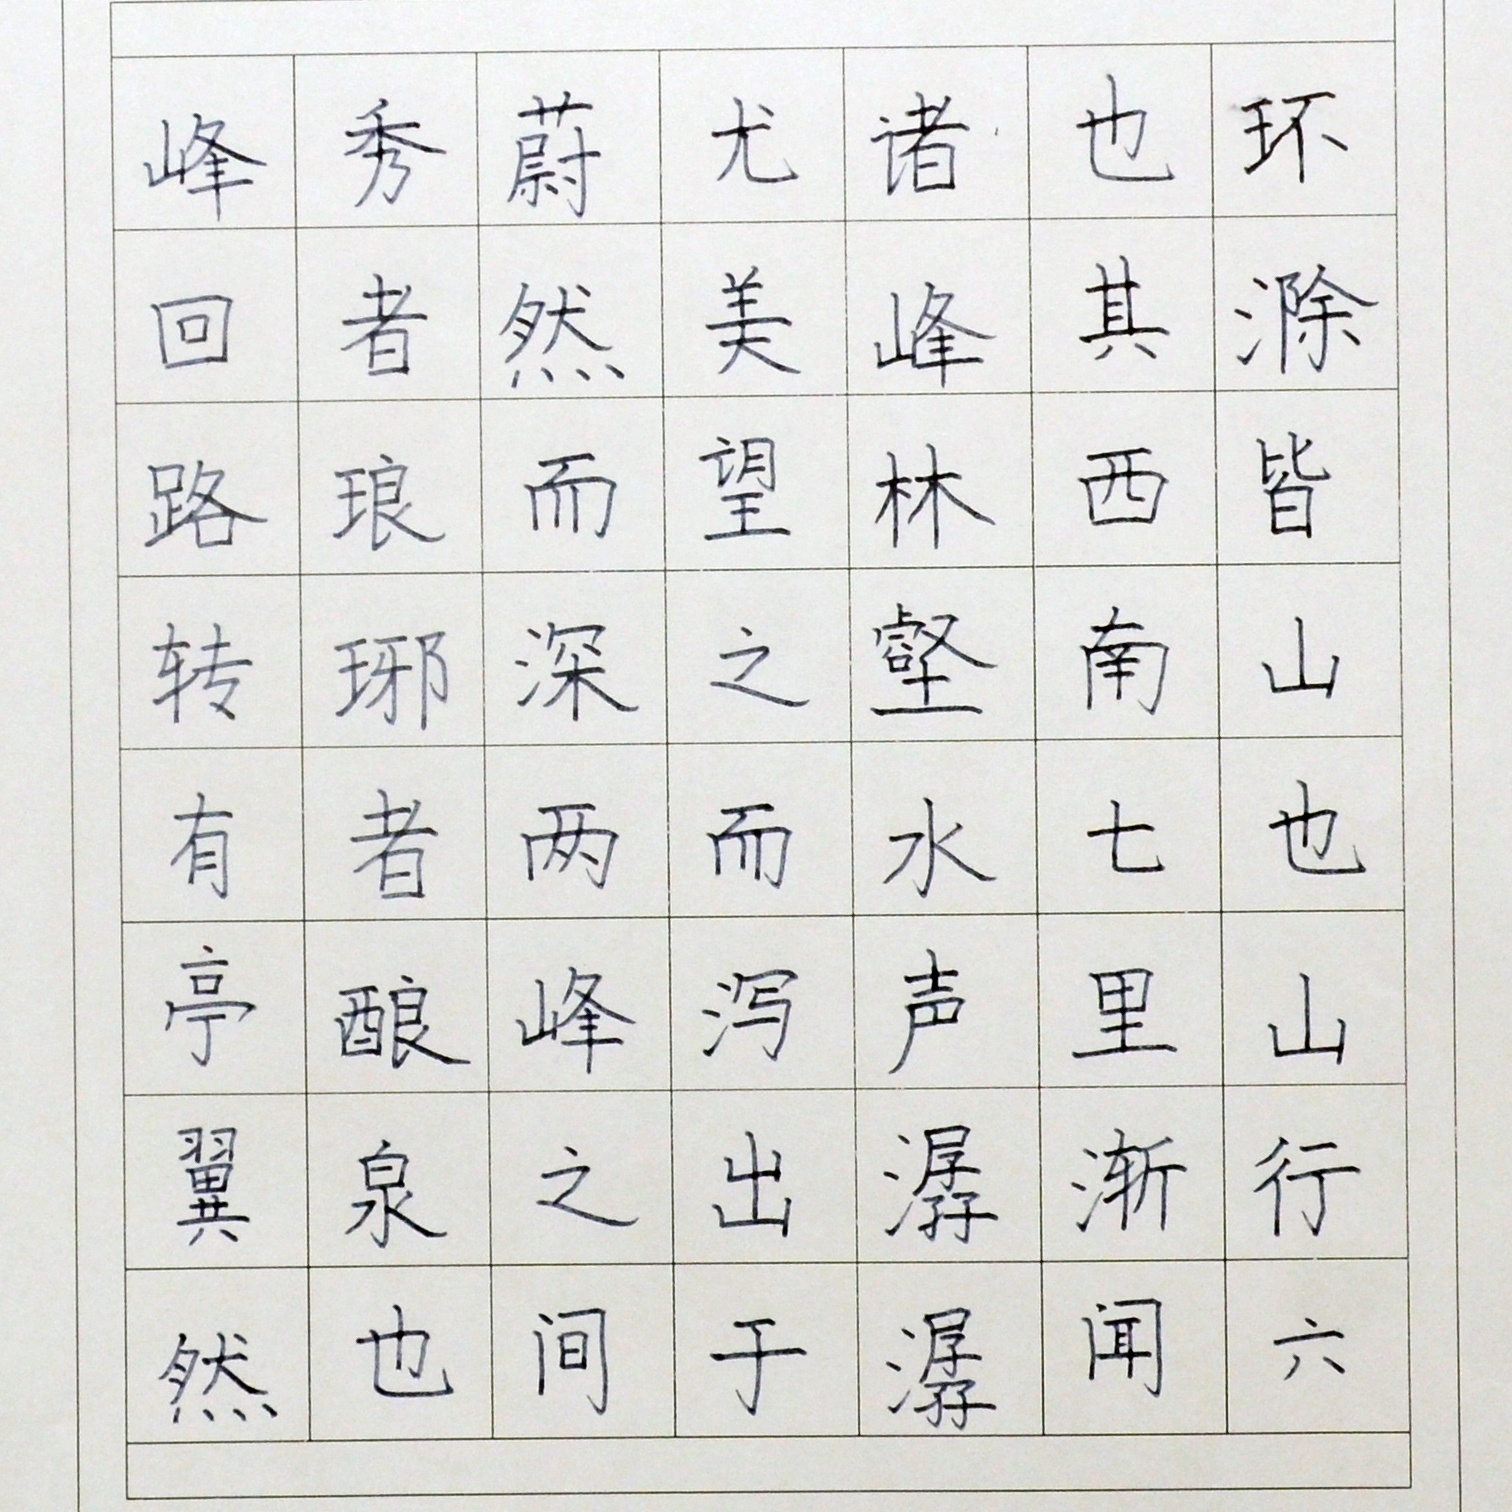 环滁皆山也山行六
也其西南七里渐闻
诸峰林壑水声潺潺
尤美望之而泻出于
蔚然而深两峰之间
秀者琅琊者酿泉也
峰回路转有亭翼然